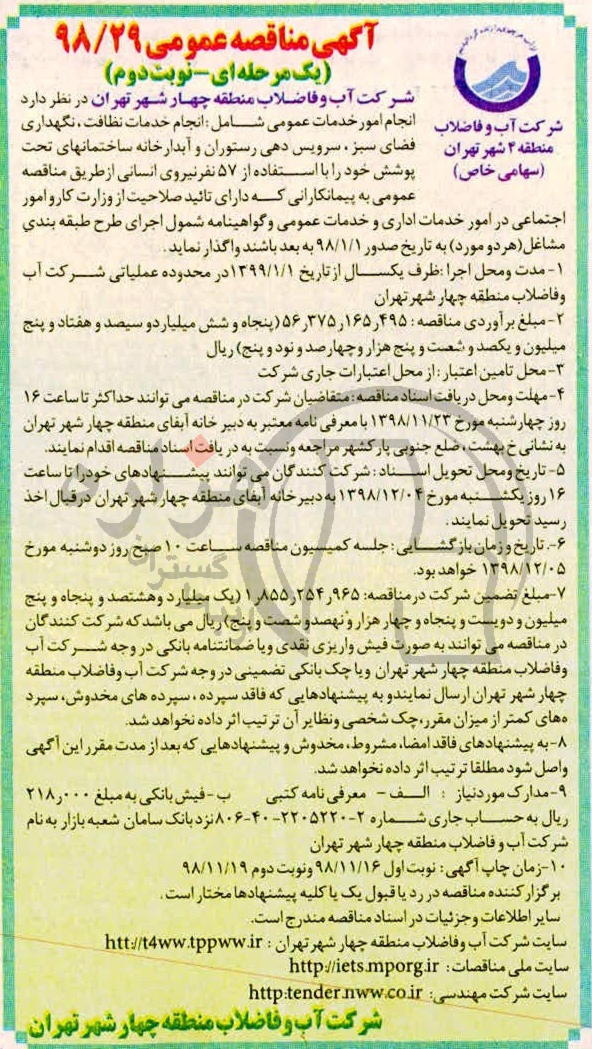 آگهی مناقصه عمومی ۹۸/۲۹
(یک مرحله ای-نوبت دوم)
شرکت آب و فاضلاب
منطقه ۴ شهر تهران
(سهامی خاص)
شرکت آب و فاضلاب منطقه چهار شهر تهران در نظر دارد
انجام امور خدمات عمومی شامل: انجام خدمات نظافت، نگهداری
فضای سبز، سرویس دهی رستوران و آبدارخانه ساختمانهای تحت
پوشش خود را با استفاده از ۵۷ نفر نیروی انسانی از طریق مناقصه
عمومی به پیمانکارانی که دارای تائید صلاحیت از وزارت کار و امور
اجتماعی در امور خدمات اداری و خدمات عمومی و گواهینامه شمول اجرای طرح طبقه بندی
مشاغل (هر دو مورد) به تاریخ صدور ۹۸/۱/۱ به بعد باشند واگذار نماید.
۱- مدت ومحل اجرا: ظرف یکسال از تاریخ ۱۳۹۹/۱/۱ در محدوده عملیاتی شرکت آب
وفاضلاب منطقه چهار شهر تهران
۲- مبلغ برآوردی مناقصه: ۵۶٫۳۷۵٫۱۶۵٫۴۹۵ (پنجاه و شش میلیارد و سیصد و هفتاد و پنج
میلیون و یکصد و شصت و پنج هزار و چهارصد و نود و پنج) ریال
۳- محل تامین اعتبار: از محل اعتبارات جاری شرکت
۴- مهلت ومحل دریافت اسناد مناقصه: متقاضیان شرکت در مناقصه می توانند حداکثر تا ساعت ۱۶
روز چهارشنبه مورخ ۱۳۹۸/۱۱/۲۳ با معرفی نامه معتبر به دبیر خانه آبفای منطقه چهار شهر تهران
به نشانی خ بهشت، ضلع جنوبی پارکشهر مراجعه ونسبت به دریافت اسناد مناقصه اقدام نمایند.
۵- تاریخ ومحل تحویل اسناد: شرکت کنندگان می توانند پیشنهادهای خود را تا ساعت
۱۶ روز یکشنبه مورخ ۱۳۹۸/۱۲/۰۴ به دبیر خانه آبفای منطقه چهار شهر تهران در قبال اخذ
رسید تحویل نمایند.
۶-. تاریخ و زمان بازگشایی: جلسه کمیسیون مناقصه ساعت ۱۰ صبح روز دوشنبه مورخ
۱۳۹۸/۱۲/۰۵ خواهد بود.
۷- مبلغ تضمین شرکت در مناقصه: ۱٫۸۵۵٫۲۵۴٫۹۶۵ (یک میلیارد وهشتصد و پنجاه و پنج
میلیون و دویست و پنجاه و چهار هزار و نهصد و شصت و پنج) ریال می باشد که شرکت کنندگان
در مناقصه می توانند به صورت فیش واریزی نقدی ویا ضمانتنامه بانکی در وجه شرکت آب
وفاضلاب منطقه چهار شهر تهران ویا چک بانکی تضمینی در وجه شرکت آب وفاضلاب منطقه
چهار شهر تهران ارسال نمایند و به پیشنهادهایی که فاقد سپرده، سپرده های مخدوش، سپرد
ه‌های کمتر از میزان مقرر، چک شخصی ونظایر آن ترتیب اثر داده نخواهد شد.
۸- به پیشنهادهای فاقد امضا، مشروط، مخدوش و پیشنهادهایی که بعد از مدت مقرر این آگهی
واصل شود مطلقا ترتیب اثر داده نخواهد شد.
۹- مدارک مورد نیاز: الف - معرفی نامه کتبی ب- فیش بانکی به مبلغ ۲۱۸٫۰۰۰
ریال به حساب جاری شماره ۲-۲۲۰۵۲۲۰-۴۰-۸۰۶ نزد بانک سامان شعبه بازار به نام
شرکت آب و فاضلاب منطقه چهار شهر تهران
۱۰- زمان چاپ آگهی: نوبت اول ۹۸/۱۱/۱۶ ونوبت دوم ۹۸/۱۱/۱۹
برگزار کننده مناقصه در رد یا قبول یک یا کلیه پیشنهادها مختار است.
سایر اطلاعات وجزئیات در اسناد مناقصه مندرج است.
سایت شرکت آب وفاضلاب منطقه چهار شهر تهران: htt://t4ww.tppww.ir
سایت ملی مناقصات: http://iets.mporg.ir
سایت شرکت مهندسی: http:tender.nww.co.ir
شرکت آب و فاضلاب منطقه چهار شهر تهران